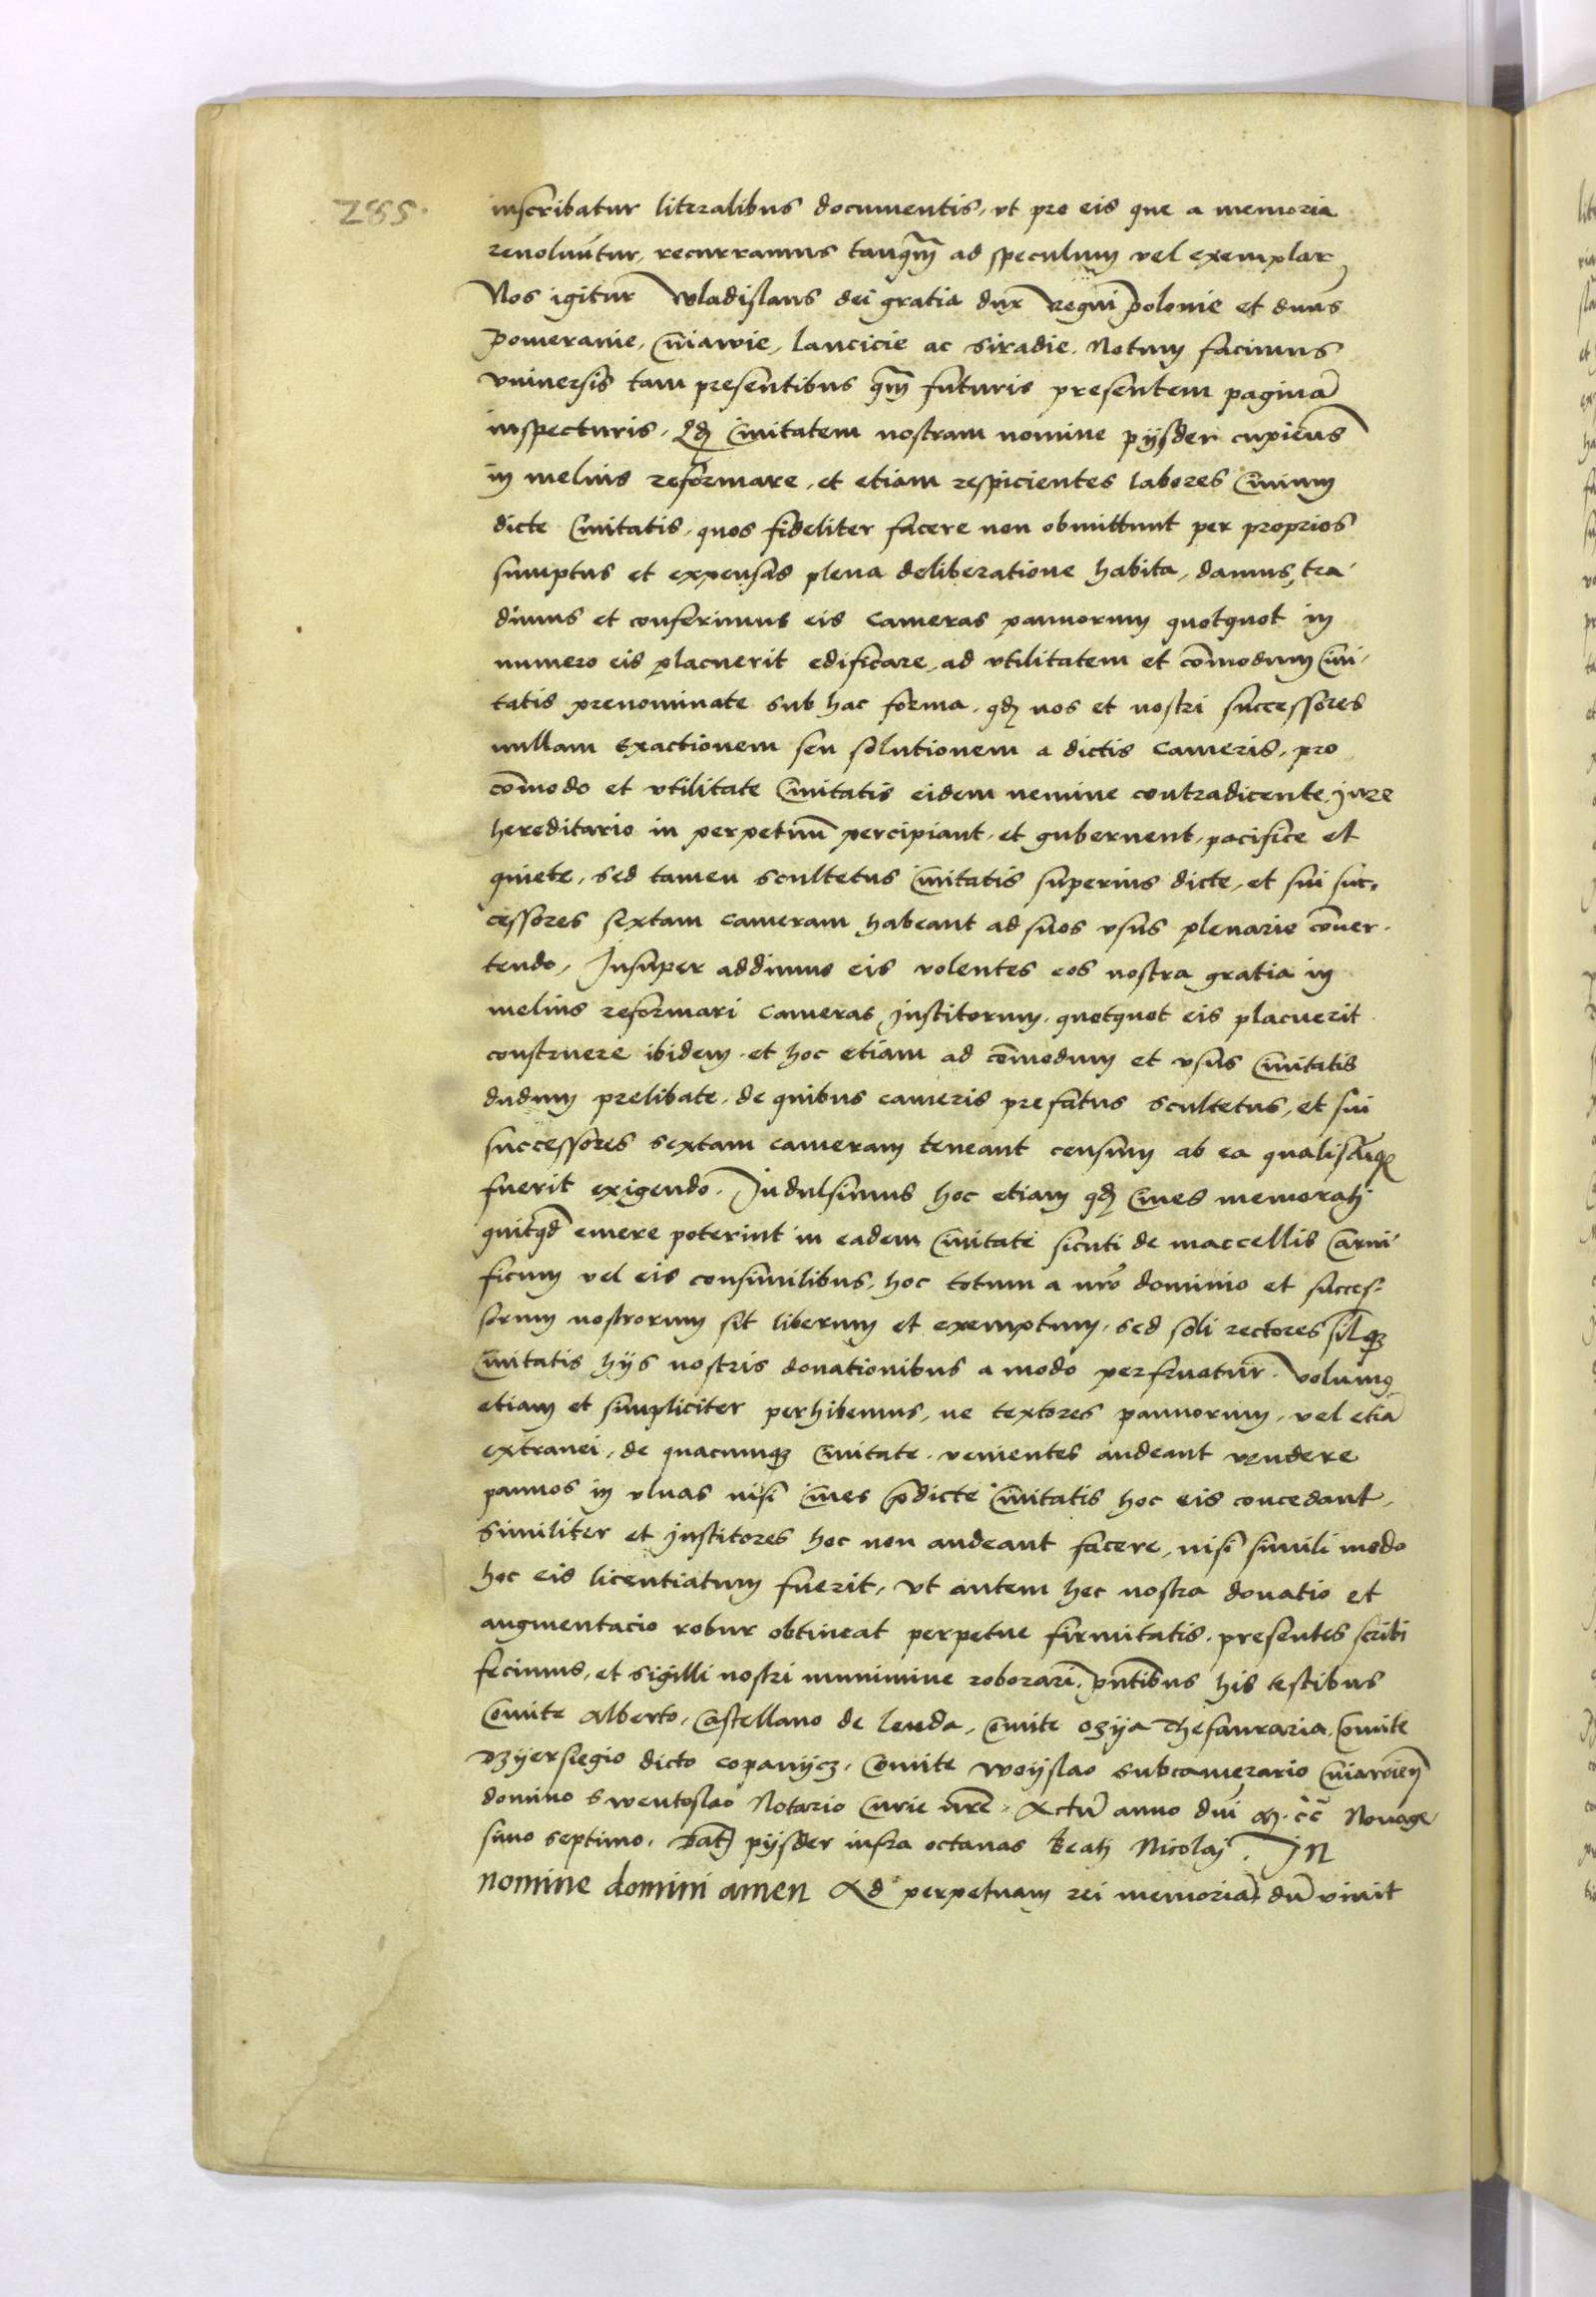 285.
inscribatur literalibus documentis, vt pro eis que a memoria
reuoluūtur, recurramus tanq̄m ad speculum vel exemplar
Nos igitur Wladislaus dei gratia dux Regni polonie et dn̄us
Pomeranie, Cuiawie, Lancicie ac Siradie. Notum facimus
vniuersis tam presentibus q̄m futuris presentem paginā
inspecturis, Qđ Ciuitatem nostram nomine pijsder cupiens
in melius reformare, et etiam respicientes labores Ciuium
dicte Ciuitatis, quos fideliter facere non obmittunt per proprios
sumptus et expensas plena deliberatione habita, damus, tra
dimus et conferimus eis Cameras pannorum quotquot in
numero eis placuerit edificare, ad vtilitatem et cōmodum Ciui,
tatis prenominate sub hac forma, qđ nos et nostri successores
nullam exactionem seu solutionem a dictis Cameris, pro
cōmodo et vtilitate Ciuitatis eidem nemine contradicente, jure
hereditario in perpetuū percipiant, et gubernent, pacifice et
quiete, sed tamen scultetus Ciuitatis superius dicte, et sui suc,
cessores sextam cameram habeant ad suos vsus plenarie cōuer,
tendo, Insuper addimus eis volentes eos nostra gratia in
melius reformari Cameras Institorum, quotquot eis placuerit
construere ibidem, et hoc etiam ad cōmodum et vsus Ciuitatis
dudum prelibate, de quibus cameris prefatus scultetus, et sui
successores sextam cameram teneant censum ab ea qualiscūqz
fuerit exigendo. Indulsimus hoc etiam qđ Ciues memorati
quitqd emere poterint in eadem Ciuitate sicuti de maccellis Carni
ficum vel eis consimilibus, hoc totum a nr̄o dominio et succes,
sorum nostrorum sit liberum et exemptum, sed soli rectores silqz
Ciuitatis hijs nostris donationibus a modo perfruatur. Volumus
etiam et simpliciter perhibemus, ne textores pannorum, vel etiā
extranei, de quacumqz Ciuitate, venientes audeant vendere
pannos in vlnas nisi Ciues p̄dicte Ciuitatis hoc eis concedant,
Similiter et Institores hoc non audeant facere, nisi simili modo
hoc eis licentiatum fuerit, Vt autem hec nostra donatio et
augmentacio robur obtineat perpetue firmitatis, presentes scribi
fecimus, et sigilli nostri munimine roborari. pn̄tibus his testibus
Comite Alberto, Castellano de lenda, Comite ozija Thesauraria, Comite
Dzijersiegio dicto copanijcz, Comite Woijslao subcamerario Cuiawien
domino Swentoslao Notario Curie nr̄e, Actū anno dn̄i M. cc Nonage
simo septimo. Dat pijsder infra octauas beati Nicolaj. IN
nomine domini amen Ad perpetuam rei memoriā, dū viuit